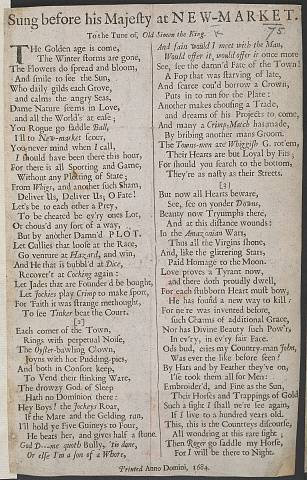 Sung before his Majesty at NEW-MARKET.
To the Tune of, Old Simon the King.
75
THe Golden age is come,
The Winter storms are gone,
The Flowers do spread and bloom,
And smile to see the Sun,
Who daily gilds each Grove,
and calms the angry Seas,
Dame Nature seems in Love,
and all the World's at ease;
You Rogue go saddle Ball,
I'll to New-market scour,
You never mind when I call,
I should have been there this hour,
For there is all Sporting and Game,
Without any Plotting of State;
From Whigs, and another such Sham,
Deliver Us, Deliver Us, O Fate!
Let's be to each other a Prey,
To be cheated be ev'ry ones Lot,
Or chous'd any sort of a way,
But by another Damn'd PLOT.
Let Cullies that loose at the Race,
Go venture at Hazard, and win,
And He that is bubbl'd at Dice,
Recover't at Cocking again:
Let Jades that are Founder'd be bought,
Let Jockeys play Crimp to make sport,
For Faith it was strange methought,
To see Tinker beat the Court.
[2]
Each corner of the Town,
Rings with perpetual Noise,
The Oyster-bawling Clown,
Joyns with hot Pudding-pies,
And both in Consort keep,
To Vend their stinking Ware,
The drowzy God of Sleep
Hath no Dominion there:
Hey Boys! the Jockeys Roar,
If the Mare and the Gelding run,
I'll hold ye Five Guineys to Four,
He beats her, and gives half a stone.
God D---me quoth Bully, 'tis done,
Or else I'm a son of a Whore,
And fain would I meet with the Man,
Would offer it, would offer it once more
See, see the damn'd Fate of the Town!
A Fop that was starving of late,
And scarce cou'd borrow a Crown,
Puts in to run for the Plate:
Another makes chousing a Trade,
and dreams of his Projects to come,
And many a Crimp-Match has made,
By bribing another mans Groom.
The Towns-men are Whiggish G. rot'em,
Their Hearts are but Loyal by Fits,
For should you search to the bottom,
They're as nasty as their Streets.
[3]
But now all Hearts beware,
See, see on yonder Downs,
Beauty now Tryumphs there,
And at this distance wounds:
In the Amazonian Wars
Thus all the Virgins shone,
And, like the glittering Stars,
Paid Homage to the Moon.
Love proves a Tyrant now,
and there doth proudly dwell,
For each stubborn Heart must bow,
He has found a new way to kill:
For ne're was invented before,
such Charms of additional Grace,
Nor has Divine Beauty such Pow'r,
In ev'ry, in ev'ry fair Face.
Ods bud, cries my Country-man John,
Was ever the like before seen?
By Hats and by Feather they've on,
I'se took them all for Men:
Embroider'd, and Fine as the Sun,
Their Horses and Trappings of Gold
Such a sight I shall ne're see again,
If I live to a hundred years old.
This, this is the Countreys discourse,
All wondring at this rare sight;
Then Roger go saddle my Horse,
For I will be there to Night.
Printed Anno Domini, 1684.